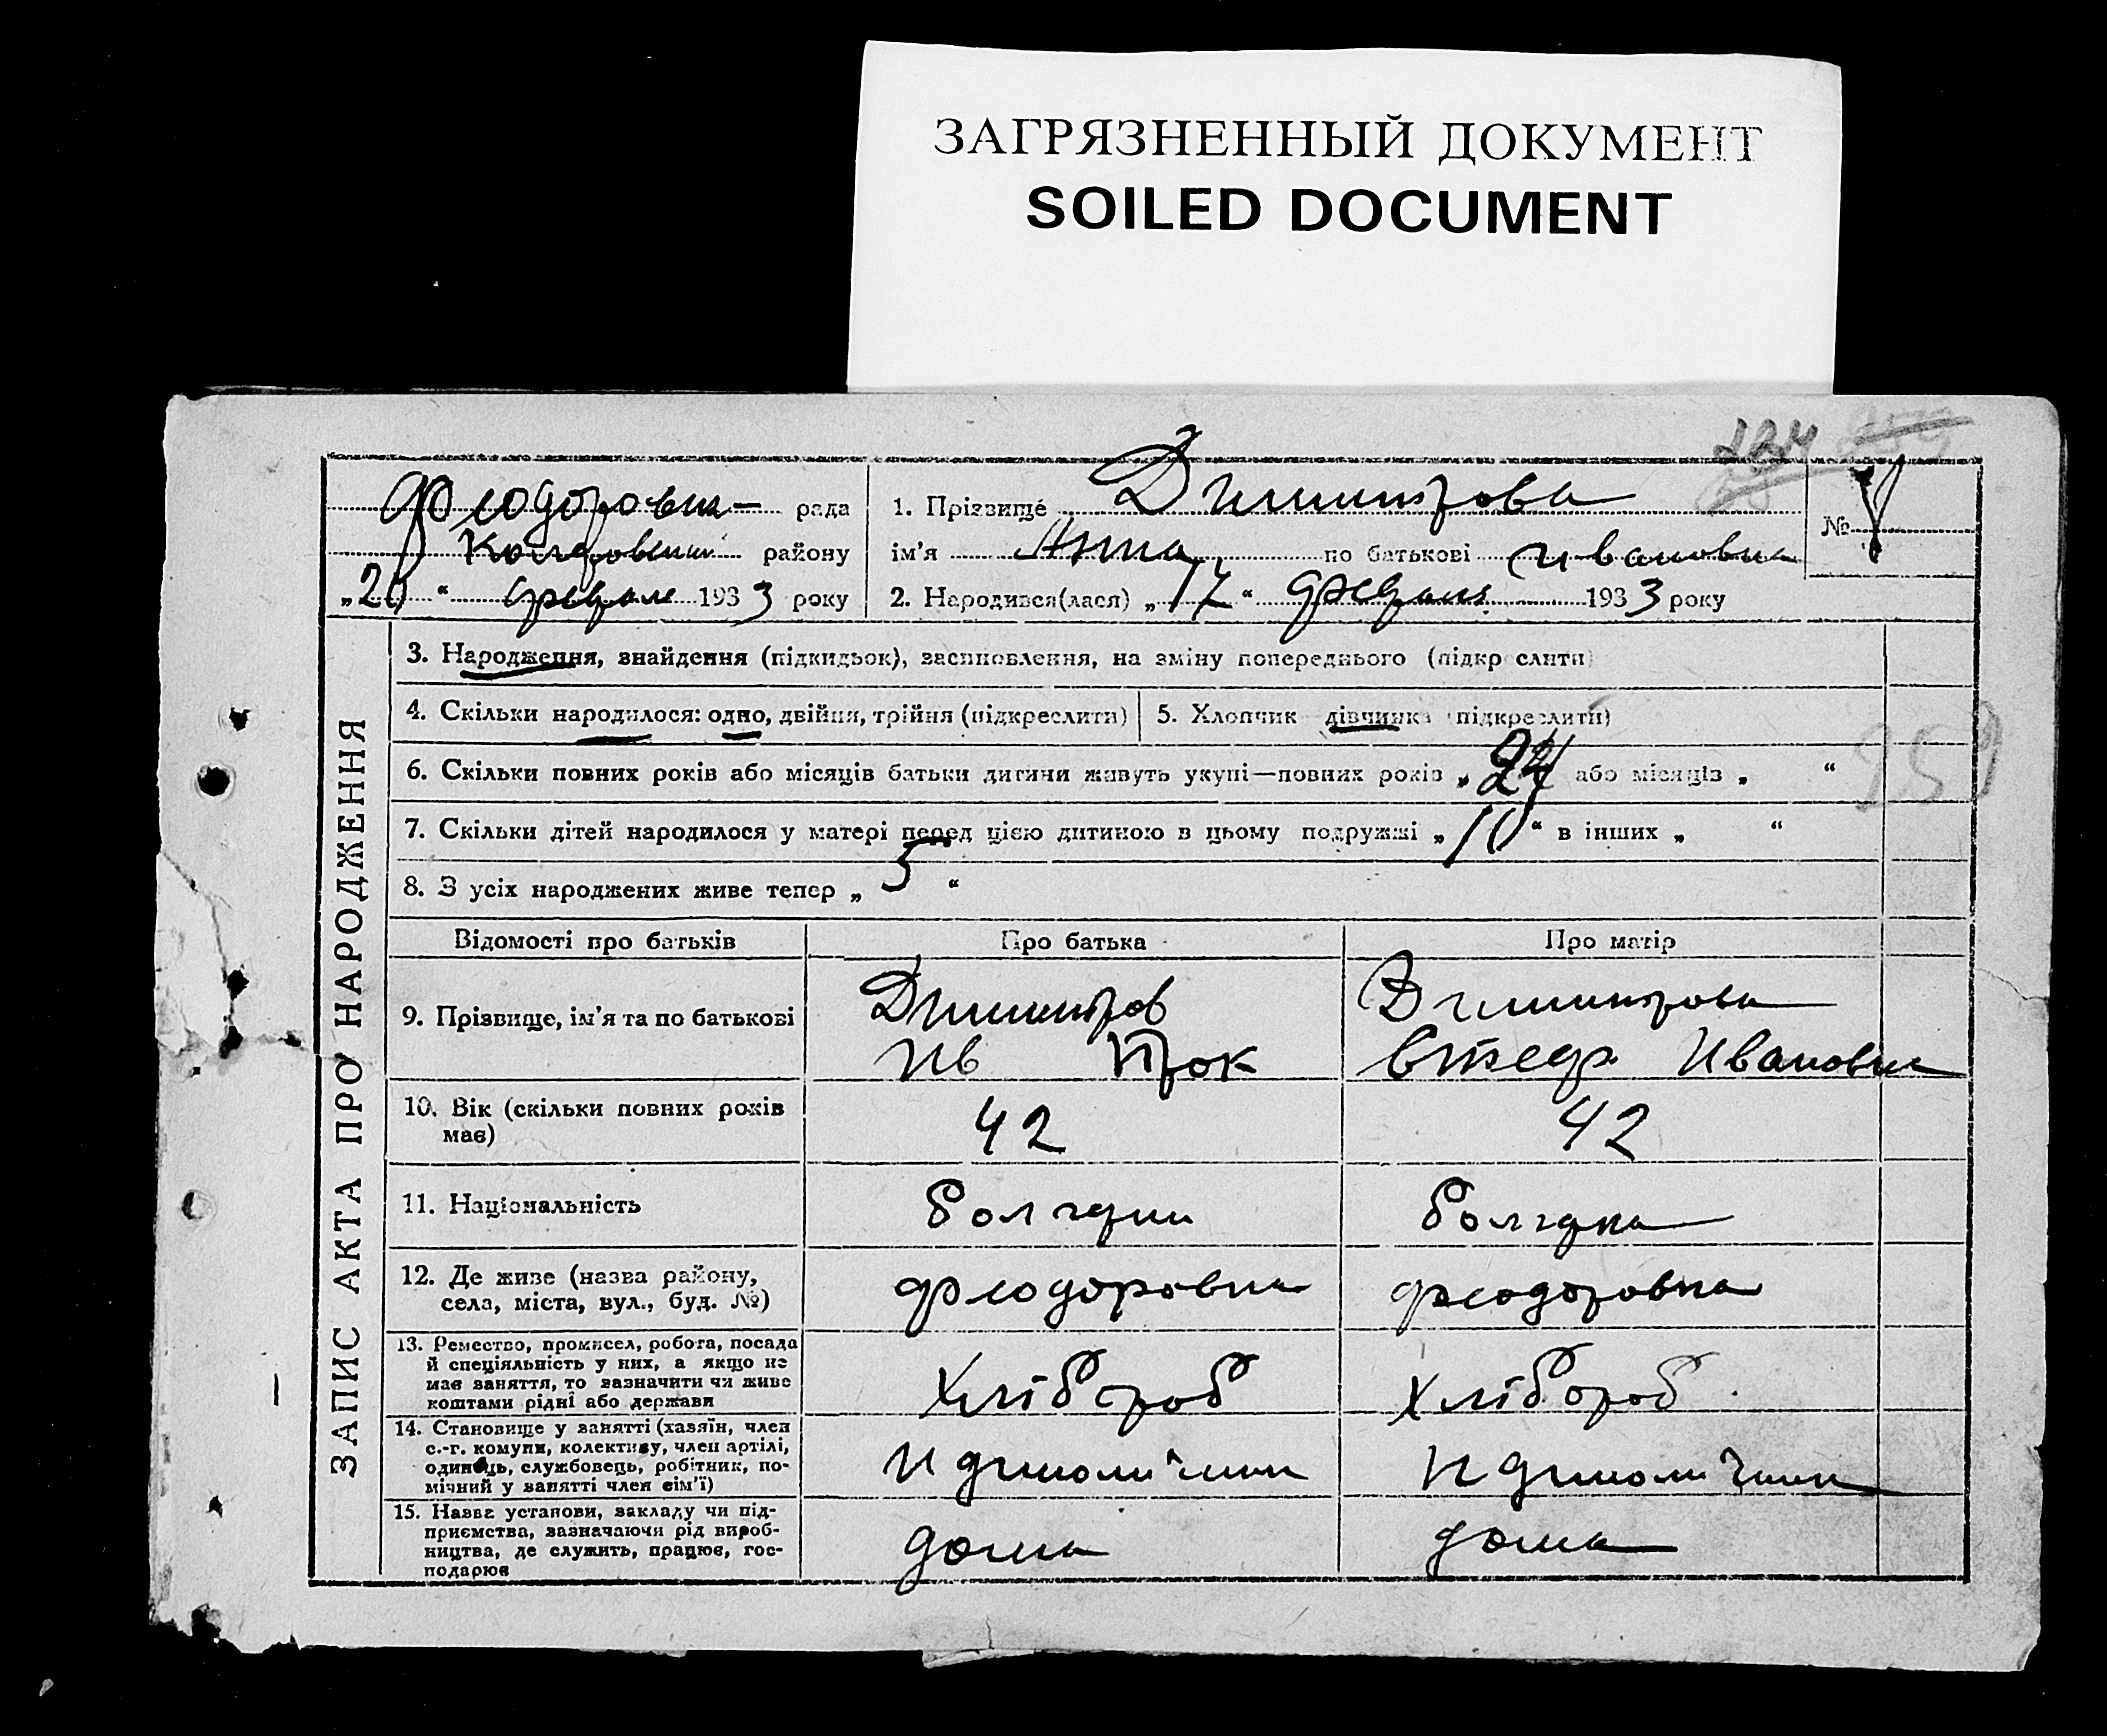 ЗАГРЯЗНЕННЫЙ ДОКУМЕНТ
SOILED DOCUMENT
рада
району
„20“ 1933 року
1. Прізвище Димитрова
ім’я Анна по батькові Ивановна
2. Народився(лася) „17“ 1933 року
№
ЗАПИС АКТА ПРО НАРОДЖЕННЯ
3. Народження, знайдення (підкидьок), засиновлення, на зміну попереднього (підкреслити)
4. Скільки народилося: одно, двійня, трійня (підкреслити)
5. Хлопчик дівчинка (підкреслити)
6. Скільки повних років або місяців батьки дитини живуть укупі—повних років „24 або місяців „ “
7. Скільки дітей народилося у матері перед цією дитиною в цьому подружжі „10“ в інших „ “
8. З усіх народжених живе тепер „5“
Відомості про батьків Про батька Про матір
9. Прізвище, ім’я та по батькові
Димитров
Ив Прок
Димитрова
Стеф Ивановна
10. Вік (скільки повних років має)
42 42
11. Національність
болгарин болгарка
12. Де живе (назва району, села, міста, вул., буд. №)
феодоровка феодоровка
13. Ремество, промисел, робота, посада
й спеціяльність у них, а якщо не
має заняття, то зазначити чи живе
коштами рідні або держави
Хлібороб Хлібороб
14. Становище у занятті (хазяїн, член
с.-г. комуни, колективу, член артілі,
одинець, службовець, робітник, по-
мічний у занятті член сім’ї)
15. Назва установи, закладу чи під-
приємства, зазначаючи рід вироб-
ництва, де служить, працює, гос-
подарює
дома дома